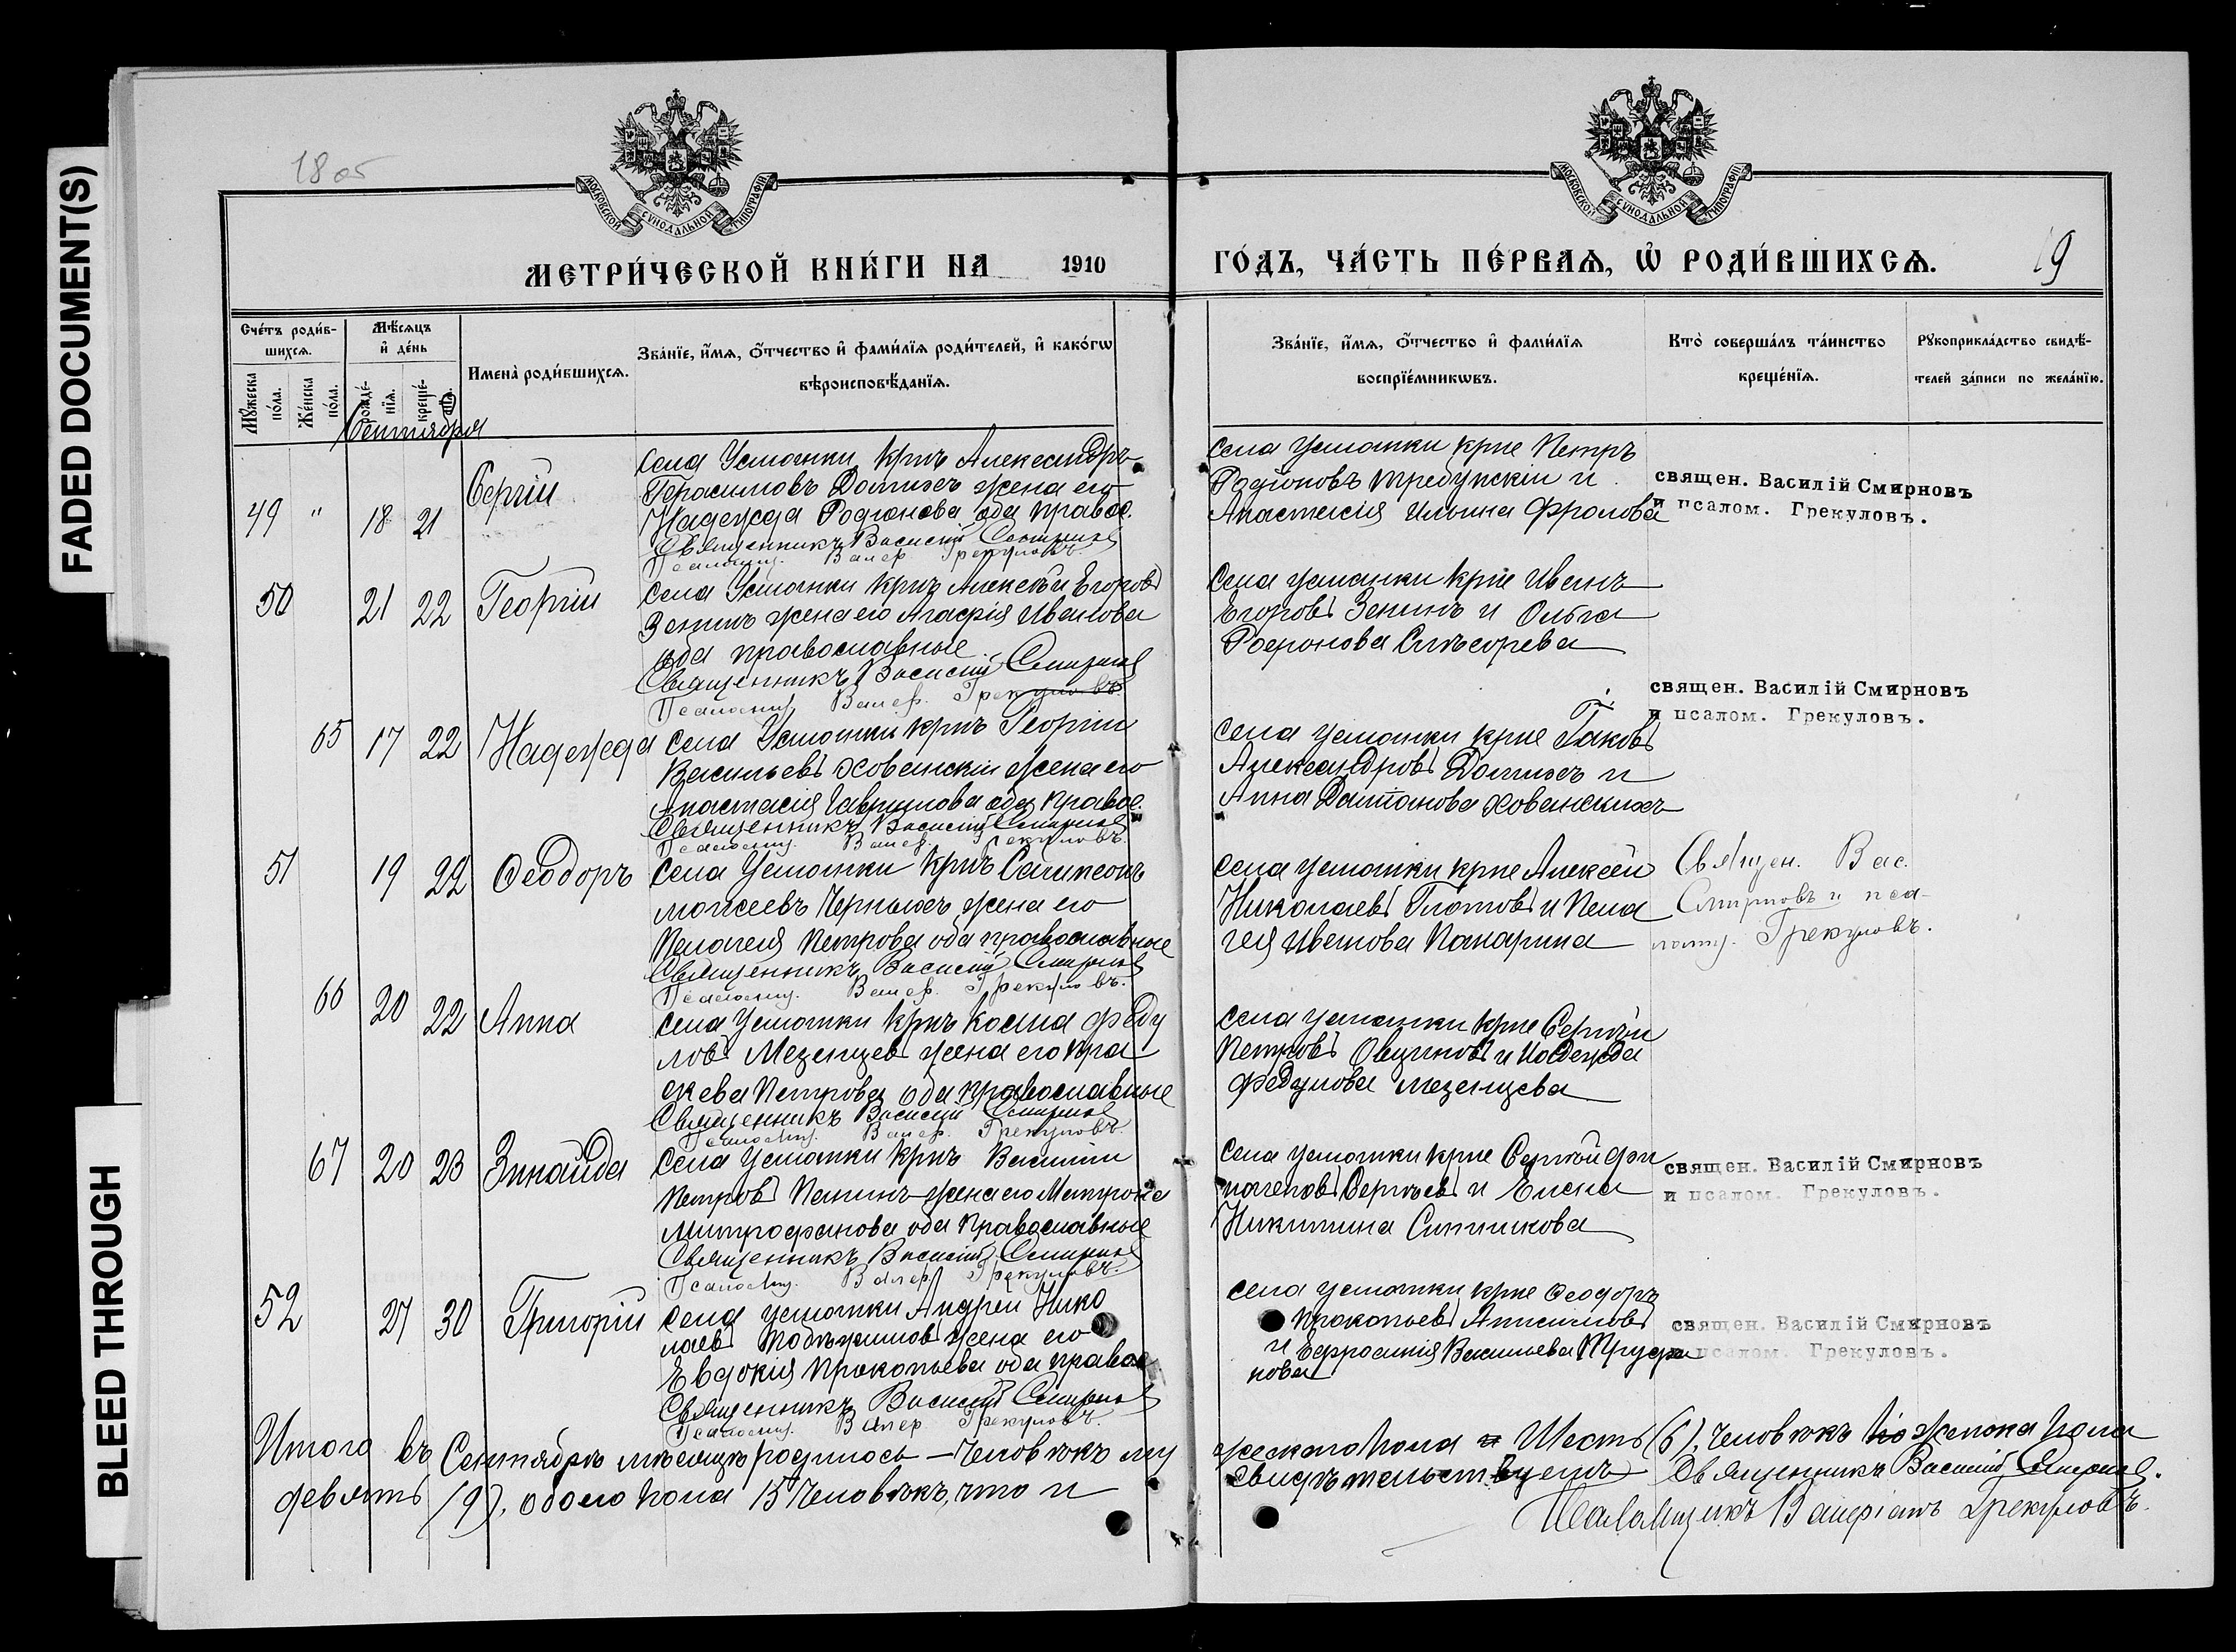 FADED DOCUMENT(S)
BLEED THROUGH
18 об
МОСКОВСКОЙ СѴНОДАЛЬНОЙ ТИПОГРАФІИ
МОСКОВСКОЙ СѴНОДАЛЬНОЙ ТИПОГРАФІИ
МЕТРИ́ЧЕСКОЙ КНИ́ГИ НА 1910
ГО́ДЪ, ЧА́СТЬ ПЕ́РВАѦ, Ѽ РОДИ́ВШИХСѦ.
19
Сче́тъ роди́в-
шихсѧ.
Мꙋжеска по́ла.
Же́нска по́ла.
Мѣ́сѧцъ
и҆ де́нь
рожде́-
нїѧ.
креще́-
нїѧ.
Имена̀ роди́вшихсѧ.
Зва́нїе, и҆́мѧ, ѻ҆́тчество и҆ фами́лїѧ роди́телей, и҆ како́гѡ
вѣроисповѣ́данїѧ.
Зва́нїе, и҆́мѧ, ѻ҆́тчество и҆ фами́лїѧ
воспрїе́мникѡвъ.
Кто̀ соверша́лъ та́инство
креще́нїѧ.
Рꙋкоприкла́дство свидѣ́-
телей за́писи по жела́нїю.
Сентября
49 " 18 21 Сергій
села Усманки крнъ Александръ
Герасимовъ Долгихъ жена его
Надежда Родіонова оба правос.
Священникъ Василій Смирновъ
Псаломщ. Валер. Грекуловъ.
села Усманки крне Петръ
Родіоновъ Требунскій и
Анастасія Ильина Фролова
священ. Василій Смирновъ
и псалом. Грекуловъ.
50 21 22 Георгій
села Усманки крнъ Алексѣй Егоровъ
Зенинъ жена его Агафія Иванова
оба православные
Священникъ Василій Смирновъ
Псаломщ. Валер. Грекуловъ.
села Усманки крне Иванъ
Егоровъ Зенинъ и Ольга
Родіонова
священ. Василій Смирновъ
и псалом. Грекуловъ.
65 17 22 Надежда
села Усманки крнъ Георгій
Васильевъ Хованскій жена его
Анастасія Гаврилова оба правос.
Священникъ Василій Смирновъ
Псаломщ. Валер. Грекуловъ.
села Усманки крне Іаковъ
Александровъ Долгихъ и
Анна Хованскихъ
51 19 22 Ѳеодоръ
села Усманки крнъ Симеонъ
Моисеевъ Черныхъ жена его
Пелагея Петрова оба православные
Священникъ Василій Смирновъ
Псаломщ. Валер. Грекуловъ.
села Усманки крне Алексѣй
Николаевъ Глотовъ и Пела
гея Иванова Панарина
Священ. Вас.
Смирновъ и пса-
ломщ. Грекуловъ.
66 20 22 Анна
села Усманки крнъ Косма Феду
ловъ Мезенцевъ жена его Пра
скева Петрова оба православные
Священникъ Василій Смирновъ
Псаломщ. Валер. Грекуловъ.
села Усманки крне Сергѣй
Петровъ Овчиновъ и Надежда
Федулова Мезенцева
67 20 23 Зинаида
села Усманки крнъ Василій
Петровъ Панинъ жена его Матрона
Митрофанова оба православные
Священникъ Василій Смирновъ
Псаломщ. Валер. Грекуловъ.
села Усманки крне Сергѣй
и Елена
Никитина Ситникова
священ. Василій Смирновъ
и псалом. Грекуловъ.
52 27 30 Григорій
села Усманки Андрей Нико
лаевъ жена его
Евдокія Прокопьева оба правос.
Священникъ Василій Смирновъ
Псаломщ. Валер. Грекуловъ.
села Усманки крне Ѳеодоръ
Прокопьевъ Анисимовъ
и Ефросинія Васильева Труфа
нова
священ. Василій Смирновъ
и псалом. Грекуловъ.
Итого въ Сентябрѣ мѣсяцѣ родилось – человѣкъ му
жескаго пола Шесть (6), человѣкъ женска пола
девять (9), обоего пола 15 человѣкъ, что и
свидѣтельствуемъ Священникъ Василій Смирновъ.
Псаломщикъ Валеріанъ Грекуловъ.